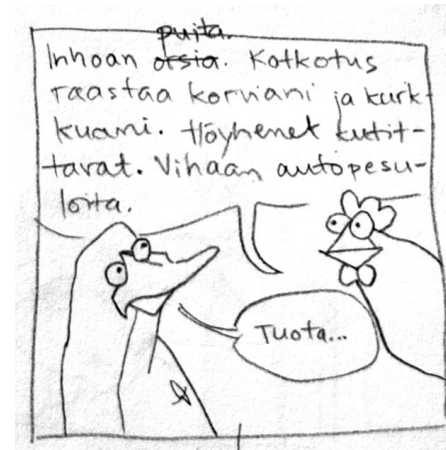 puita.
Inhoan orsia. Kotkotus
raastaa korviani ja kurk-
kuani. Höyhenet kutit-
tavat. Vihaan autopesu-
loita.
Tuota...